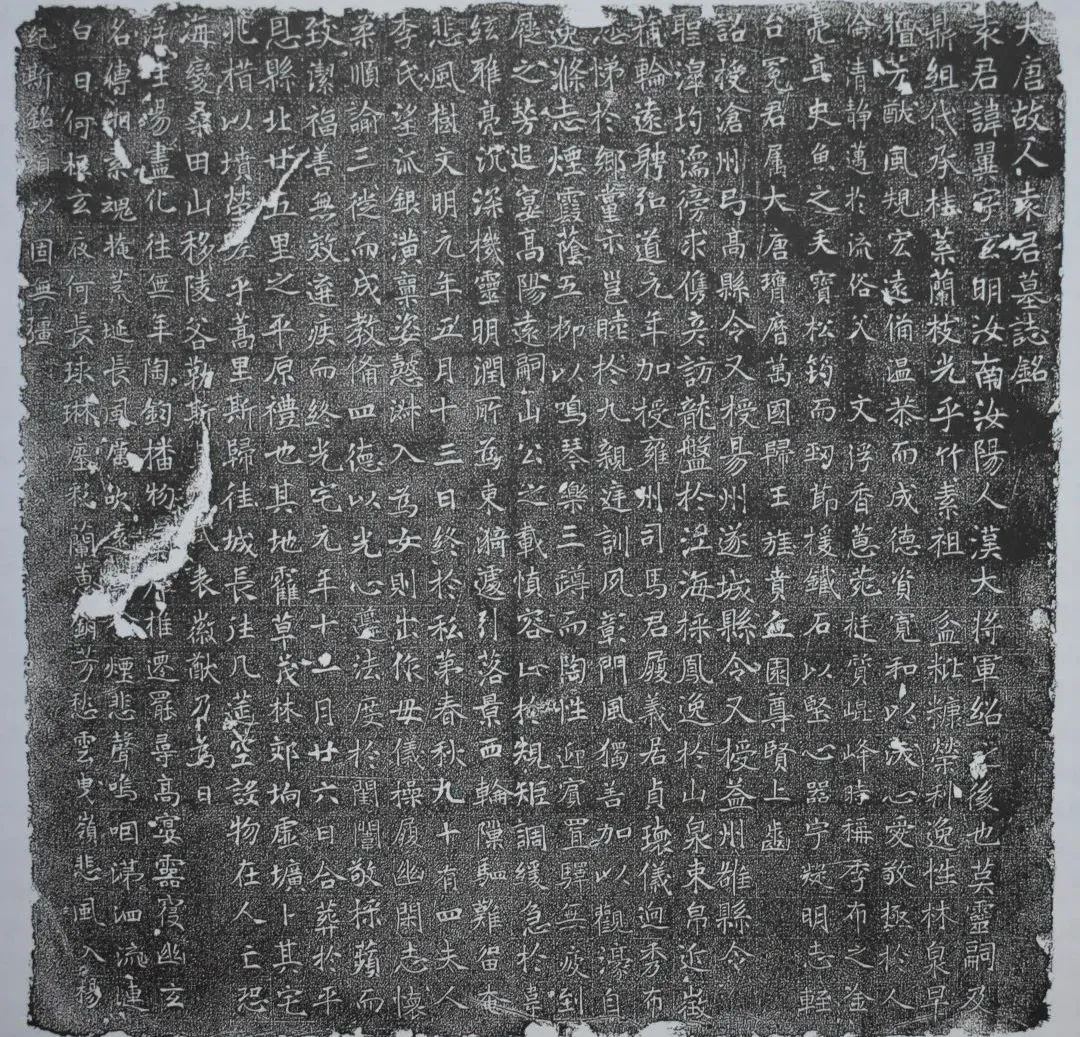 大唐故人袁君墓誌銘
袁君諱翼字玄明汝南汝陽人漢大將軍紹之後也莫靈嗣及
鼎組代承桂蘂蘭枝光乎竹素祖 益粃糠榮利逸性林泉早
擅芳猷風規宏遠俻温恭而成德資寬和以成心愛敬極於人
倫清静邁於流俗父 文浮香蕙菀挺質崐峰時稱季布之金
亮直史魚之矢寳松筠而勁節援鐵石以堅心器宇凝明志輕
台冕君属大唐膺曆萬國歸王旌賁丘園尊賢上齒
詔授滄州弓高縣令又授易州遂城縣令又授益州雒縣令
聖湋均濡傍求儁彦訪龍盤於溟海採鳳逸於山泉束帛近徵
蒱輪遠聘弘道元年加授雍州司馬君履義居貞瓌儀迥秀布
愷悌於鄉黨示邕睦於九親庭訓夙彰門風獨善加以觀濠自
逸滌志煙霞蔭五柳以鳴琴樂三罇而陶性迎賔置驛無疲到
屣之勞追宴高陽遠嗣山公之載慎容止於規矩調緩急於韋
弦雅亮沉深機靈明潤所爲東漪遽引落景西輪隟駈難留奄
悲風樹文明元年五月十三日終於私第春秋九十有四夫人
李氏望泒銀潢禀姿懿淋入為女則出作母儀操履幽閑志懐
柔順諭三從而成教俻四德以光心遵法度於閨閫敬採蘋而
致潔福善無效遘疾而終光宅元年十二月廿六日合葬於平
恩縣北廿五里之平原禮也其地䨥草茂林郊坰虚壙卜其宅
兆措以墳塋居乎蒿里斯歸佳城長往几莚空設物在人亡恐
海變桑田山移陵谷勒斯 式表徽猷乃為曰
浮生易盡化往無年陶鈞播物 推遷罷尋高宴 寢幽玄
名傳緗素魂掩荒埏長風厲吹遠 煙悲聲嗚咽涕泗流連
白日何 玄夜何長球琳 彩蘭蕙銷芳愁雲曳嶺悲風入楊
紀斯銘頌以固無疆